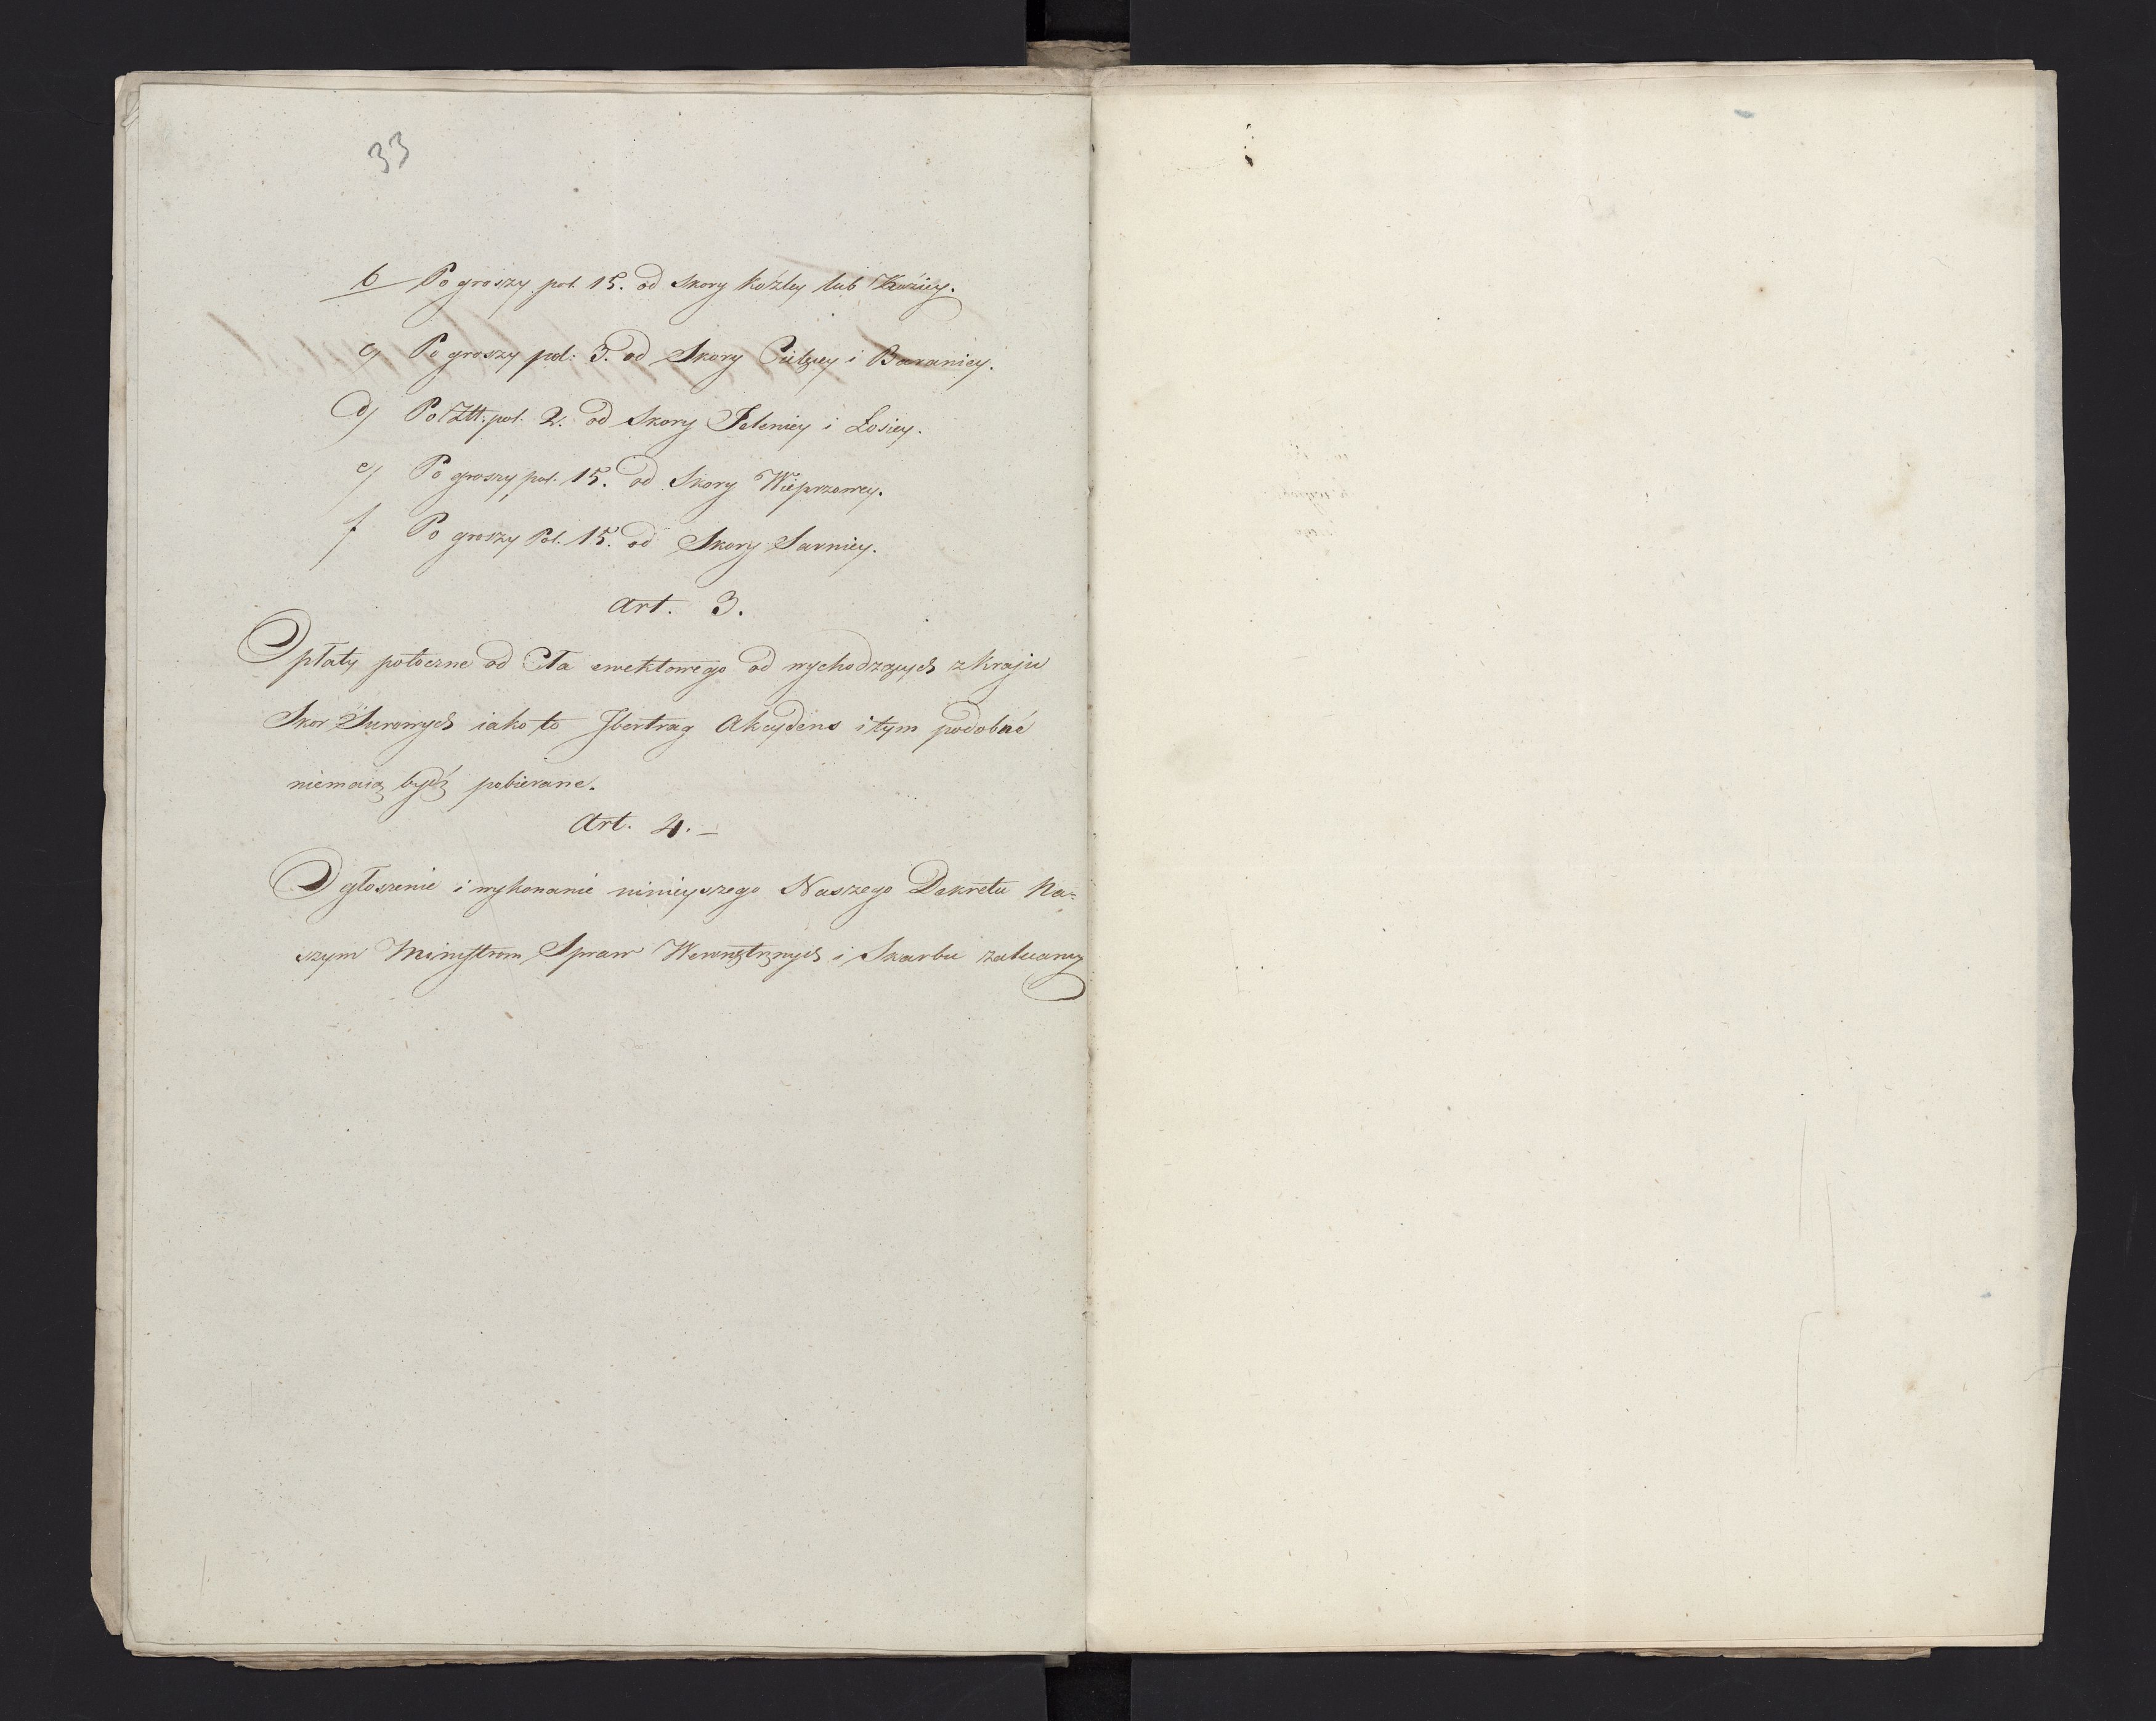 33
b Po groszy pol. 15. od Skory koźley lub Koziey.
c) Po groszy pol: 3. od Skory Cielęcey i Baraniey.
d) Po Ztt. pol. 2. od Skory Jeleniey i Łosiey.
e) Po groszy pol. 15. od Skory Wieprzowey.
f Po groszy Pol. 15. od Skory Sarniey.
Art. 3.
Opłaty poboczne od Cła ewektowego od wychodzących z kraju
Skor Surowych iako to Ibertrag Akcydens i tym podobné
niemaią bydź pobierane.
Art. 4. –
Ogłoszenie i wykonanie ninieyszego Naszego Dekretu Na=
szym Ministrom Spraw Wewnętrznych i Skarbu zalecamy